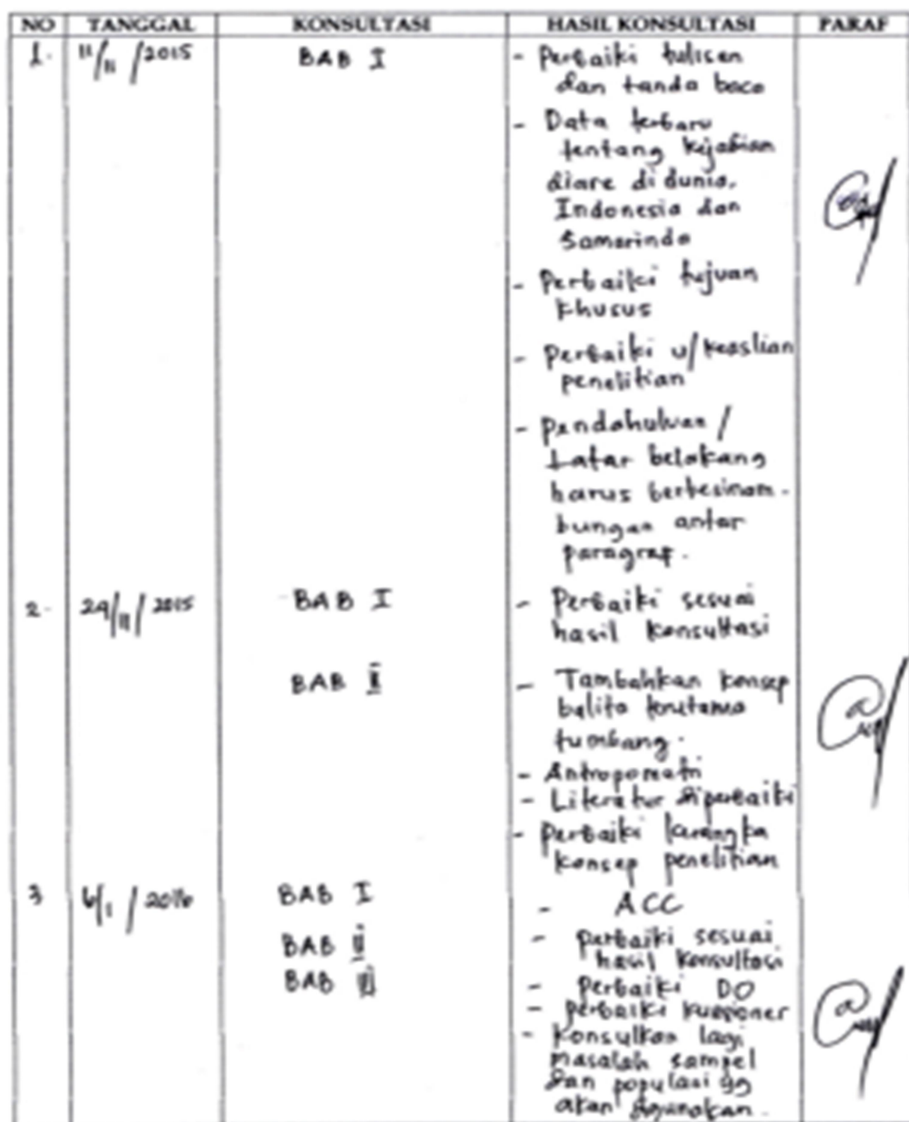 NO TANGGAL KONSULTASI HASIL KONSULTASI PARAF
1. 11/11/2015 BAB I - Perbaiki tulisan
dan tanda baca
- Data terbaru
tentang kejadian
diare di dunia,
Indonesia dan
Samarinda
- Perbaiki tujuan
khusus
- Perbaiki u/ keaslian
penelitian
- Pendahuluan /
Latar belakang
harus berkesinam-
bungan antar
paragraf.
2. /11/2015 BAB I - Perbaiki sesuai
hasil konsultasi
BAB II - Tambahkan konsep
balita terutama
tumbang.
- Antropometri
- Literatur diperbaiki
- Perbaiki kerangka
konsep penelitian
3 6/1/2016 BAB I - ACC
BAB II - perbaiki sesuai
hasil konsultasi
BAB III - perbaiki DO
- perbaiki kuesioner
- konsulkan lagi
masalah sampel
dan populasi yg
akan digunakan.